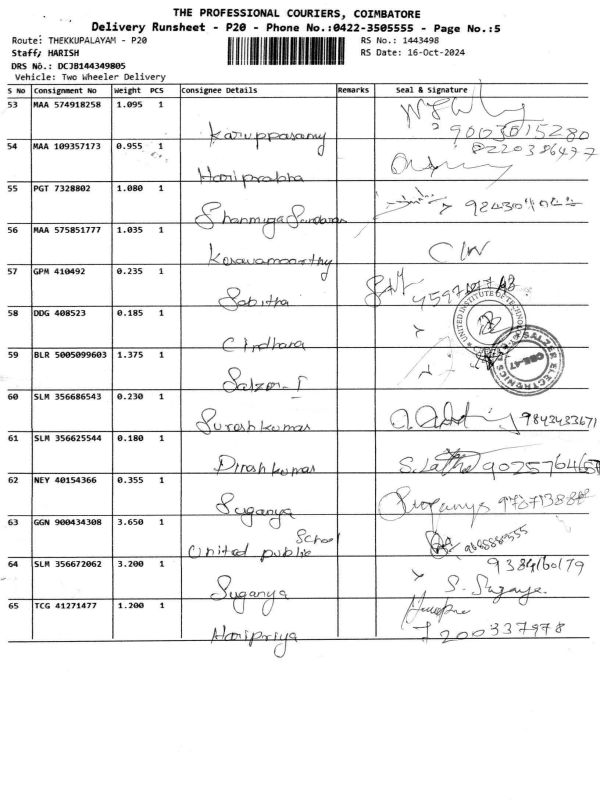 THE PROFESSIONAL COURIERS, COIMBATORE
Delivery Runsheet - P20 - Phone No.:0422-3505555 - Page No.:5
Route: THEKKUPALAYAM - P20 RS No.: 1443498
Staff: HARISH RS Date: 16-Oct-2024
DRS No.: DCJB144349805
Vehicle: Two Wheeler Delivery
S No Consignment No Weight PCS Consignee Details Remarks Seal & Signature
53 MAA 574918258 1.095 1
Karuppasamy 9003015280
54 MAA 109357173 0.955 1 8220386497
Hariprabha
55 PGT 7328802 1.080 1
Shanmuga Sundaram
56 MAA 575851777 1.035 1
Kesavamoorthy
57 GPM 410492 0.235 1
Sabitha
58 DDG 408523 0.185 1
UNITED INSTITUTE OF TECHNOLOGY
Cindhana
59 BLR 5005099603 1.375 1
SALZER ELECTRONICS
Salzer-I
60 SLM 356686543 0.230 1
Sureshkumar 9843433671
61 SLM 356625544 0.180 1
Dineshkumar S. Latha
62 NEY 40154366 0.355 1
Suganya
63 GGN 900434308 3.650 1
United public School
64 SLM 356672062 3.200 1 9384160179
Suganya S. Suganya
65 TCG 41271477 1.200 1
Haripriya 7200337978